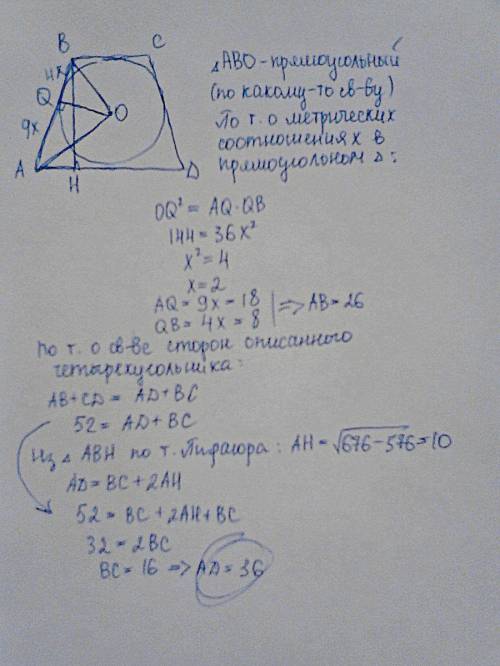 B C
4x
Q
O
9x
A
H
D
△ABO-прямоугольный
(по какому-то св-ву)
По т. о метрических
соотношениях в
прямоугольном △:
OQ² = AQ·QB
144 = 36x²
x² = 4
x = 2
AQ = 9x = 18
QB = 4x = 8
=> AB = 26
По т. о св-ве сторон описанного
четырехугольника:
AB+CD = AD+BC
52 = AD+BC
Из △ ABH по т. Пифагора: AH = √676-576 = 10
AD = BC + 2AH
52 = BC + 2AH + BC
32 = 2BC
BC = 16 => AD = 36